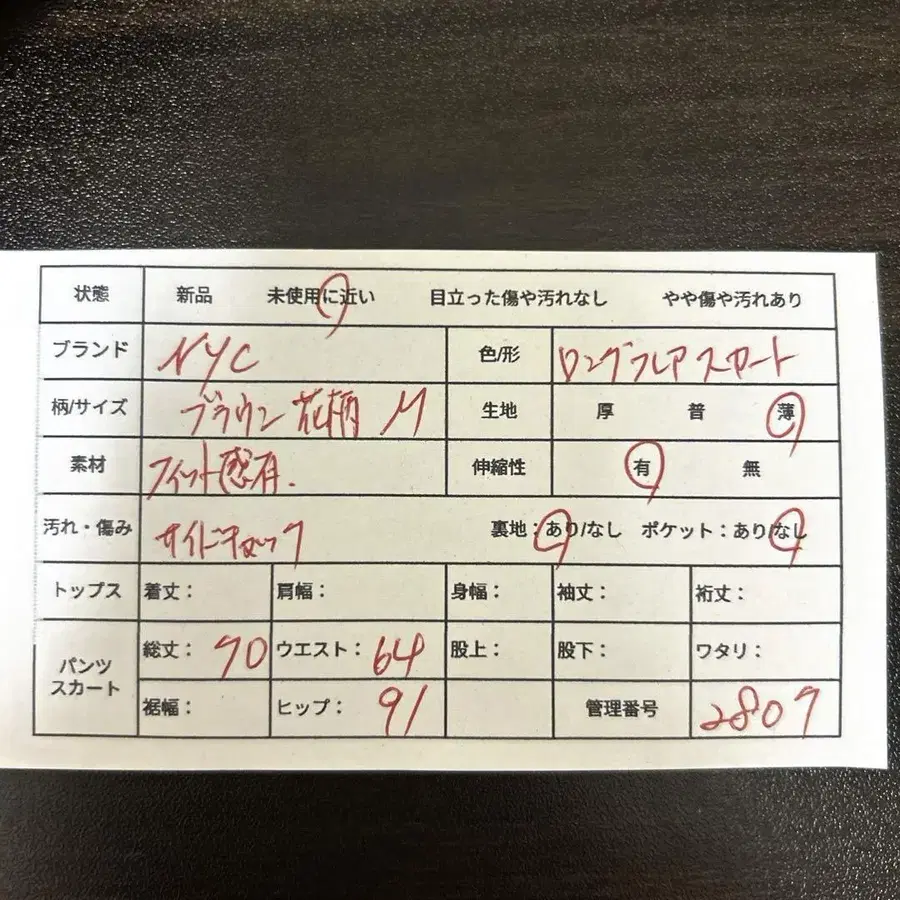 状態 新品 未使用に近い 目立った傷や汚れなし やや傷や汚れあり
ブランド NYC 色/形 ロングフレアスカート
柄/サイズ ブラウン 花柄 M 生地 厚 普 薄
素材 フィット感有. 伸縮性 有 無
汚れ・傷み サイドチャック 裏地:あり/なし ポケット:あり/なし
トップス 着丈: 肩幅: 身幅: 袖丈: 裄丈:
パンツ スカート 総丈: 90 ウエスト: 64 股上: 股下: ワタリ:
裾幅: ヒップ: 91 管理番号 2809